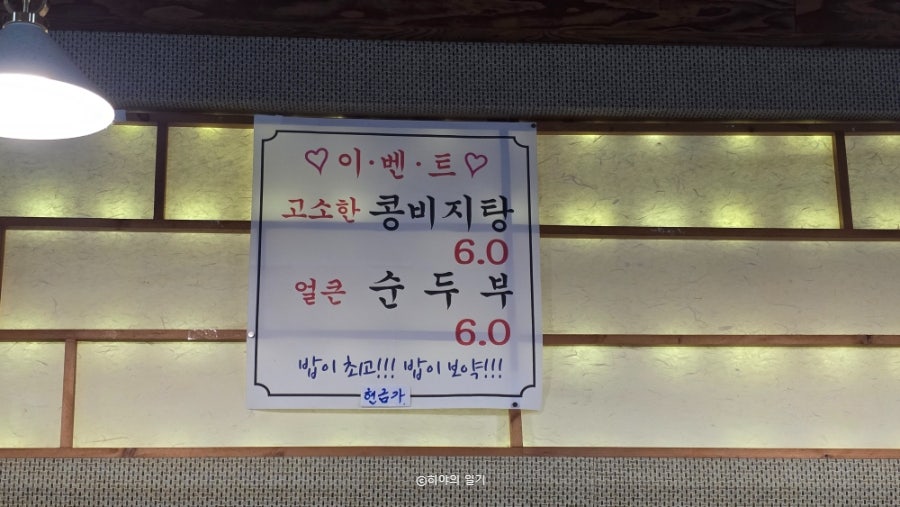 ♡이·벤·트♡
고소한 콩비지탕
6.0
얼큰 순두부
6.0
밥이 최고!!! 밥이 보약!!!
현금가
©히야의 일기